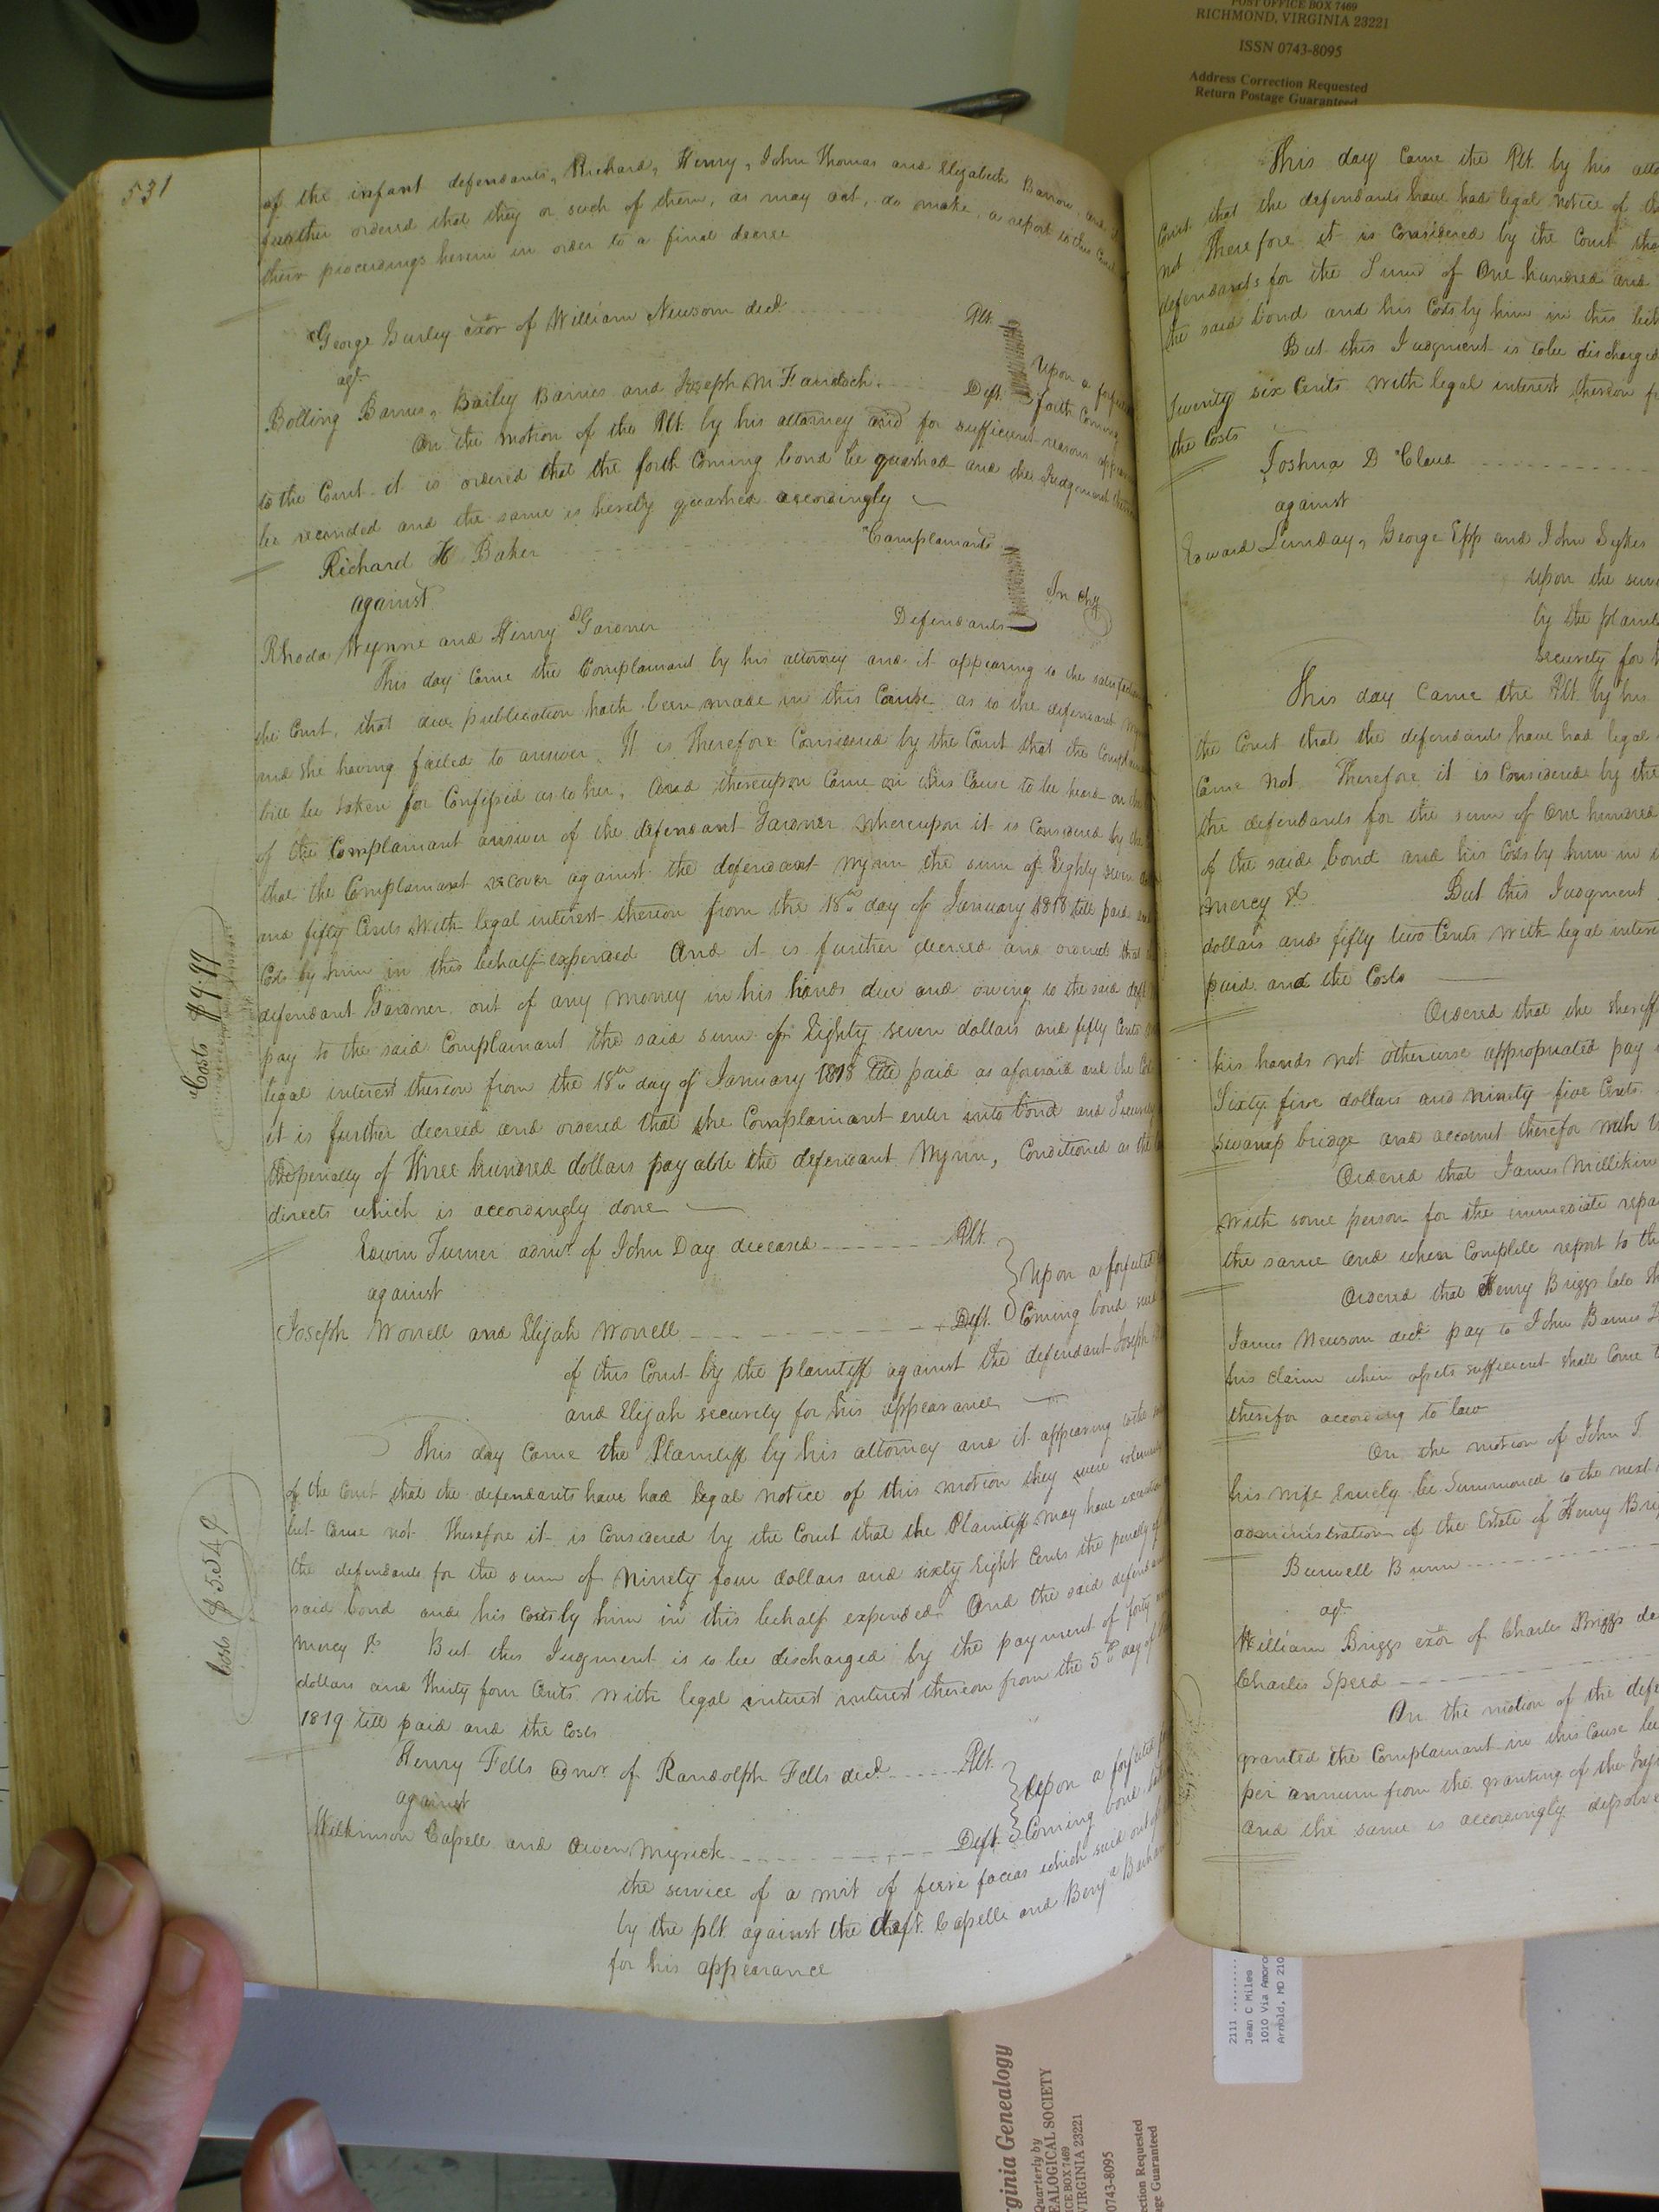 POST OFFICE BOX 7469
RICHMOND, VIRGINIA 23221
ISSN 0743-8095
Address Correction Requested
Return Postage Guaranteed
531
of the infant defendants, Richard, Henry, John Thomas and Elizabeth Barrow and
further ordered that they or such of them, as may act, do make a report to this Court
their proceedings herein in order to a final decree
George Gurley exor of William Newsom decd. Plt.
agt.
Bolling Barnes, Bailey Barnes and Joseph M. Deft.
Upon a
forth Coming
On the motion of the Plt. by his attorney and for sufficient reasons
to the Court it is ordered that the forth Coming bond be quashed and the Judgement
be recinded and the same is hereby quashed accordingly
Richard H Baker Complainant
against
In Chy
Rhoda Wynne and Henry Gardner Defendants
This day Came the Complainant by his attorney and it appearing to the satisfaction
the Court, that due publication hath been made in this Cause as to the defendant
and she having failed to answer, It is therefore Considered by the Court that the
bill be taken for Confessed as to her, And thereupon Came on this Cause to be heard on the
of the Complainant answer of the defendant Gardner whereupon it is Considered by the
that the Complainant recover against the defendant Wynn the sum of Eighty seven
and fifty Cents with legal interest thereon from the 18th day of January 1818 till paid
Costs by him in this behalf expended And it is further decreed and ordered that
Costs $9.99
defendant Gardner out of any money in his hands due and owing to the said deft
pay to the said Complainant the said sum of Eighty seven dollars and fifty Cents
legal interest thereon from the 18th day of January 1818 till paid as aforesaid and the
it is further decreed and ordered that the Complainant enter into bond and Security
the penalty of three hundred dollars payable the defendant Wynn, Conditioned as the
directs which is accordingly done
Edwin Turner admr. of John Day deceased Plt.
against
Upon a forfeited
Joseph Worrell and Elijah Worrell Deft. Coming bond
of this Court by the plaintiff against the defendant Joseph
and Elijah security for his appearance
This day Came the Plaintiff by his attorney and it appearing to the
of the Court that the defendants have had legal notice of this motion they were
but Came not Therefore it is Considered by the Court that the Plaintiff may have execution
the defendants for the sum of Ninety four dollars and sixty Eight Cents the penalty of
Costs $5.54
said bond and his Costs by him in this behalf expended And the said
mercy &c. But this Judgment is to be discharged by the payment of forty
dollars and thirty four Cents with legal interest interest thereon from the 5th day of
1819 till paid and the Costs
Henry Fells admr. of Randolph Fells decd. Plt.
against
Upon a forfeited
Wilkinson Capell and Owen Myrick Deft. Coming bond
the service of a writ of fieri facias which sued out of
by the plt. against the deft. Capell and Benja
for his appearance
This day Came the Plt. by his
Court that the defendants have had legal notice of
not Therefore it is Considered by the Court
defendants for the Sum of One hundred and
the said bond and his Costs by him in this
But this Judgment is to be discharged
twenty six Cents with legal interest thereon
the Costs
Joshua D Claud
against
Edward Lunday, George Epp and John Sykes
upon the
by the
security for
This day Came the Plt. by his
the Court that the defendants have had legal
Came not Therefore it is Considered by the
the defendants for the sum of One hundred
of the said bond and his Costs by him in
mercy &c But this Judgment
dollars and fifty two Cents with legal
paid and the Costs
Ordered that the Sheriff
his hands not otherwise appropriated pay
Sixty five dollars and ninety five Cents
swamp bridge and account therefor with
Ordered that James Millikin
with some person for the immediate
the same and when Complete report to the
Ordered that Henry Briggs late
James Newsom decd. pay to John Barnes
his Claim when assets sufficient shall Come
therefor according to law
On the motion of John T.
his wife be Summoned to the next
administration of the Estate of Henry
Burwell Bunn
agt.
William Briggs exor of Charles Briggs
Charles Speed
On the motion of the
granted the Complainant in this Cause
per annum from the granting of the
and the same is accordingly
2111
Jean C Miles
1010 Via
Arnold, MD 210
ginia Genealogy
Quarterly by
EALOGICAL SOCIETY
ICE BOX 7469
VIRGINIA 23221
0743-8095
ction Requested
age Guaranteed